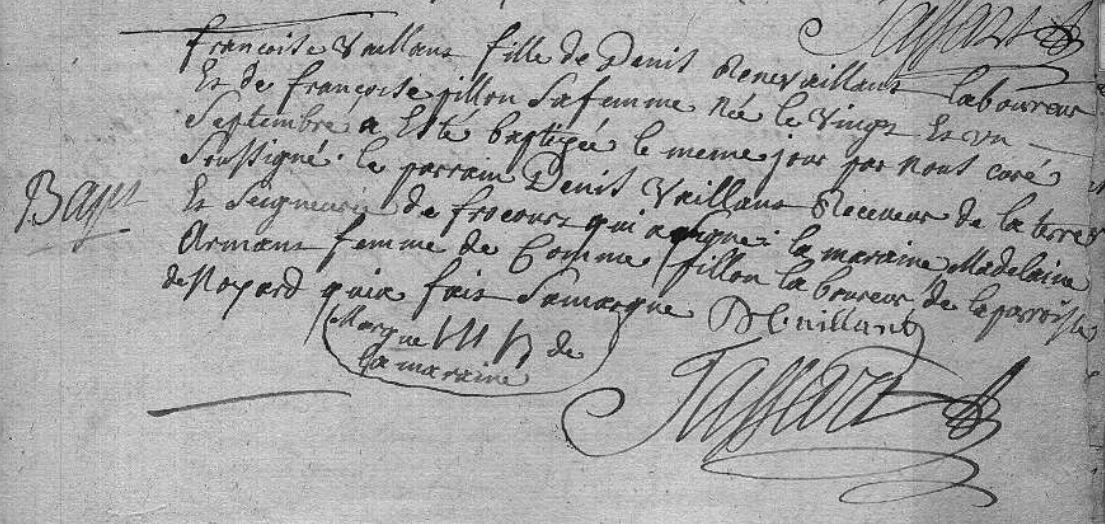 Tassart
francoise vaillant fille de Denis Rene vaillant laboureur
Et de françoise fillon sa femme née le vingt Et un
Septembre a Esté baptizée le meme jour par nous curé
Soussigné. le parrain Denis vaillant Receveur de la terre
Bapt
Et Seigneurie de frocourt qui a signé: la maraine Madelaine
Armant femme de Comme fillon laboureur de la parroisse
de Noyard qui a fait Sa marque D Vaillant
Marque de
la maraine
Tassart